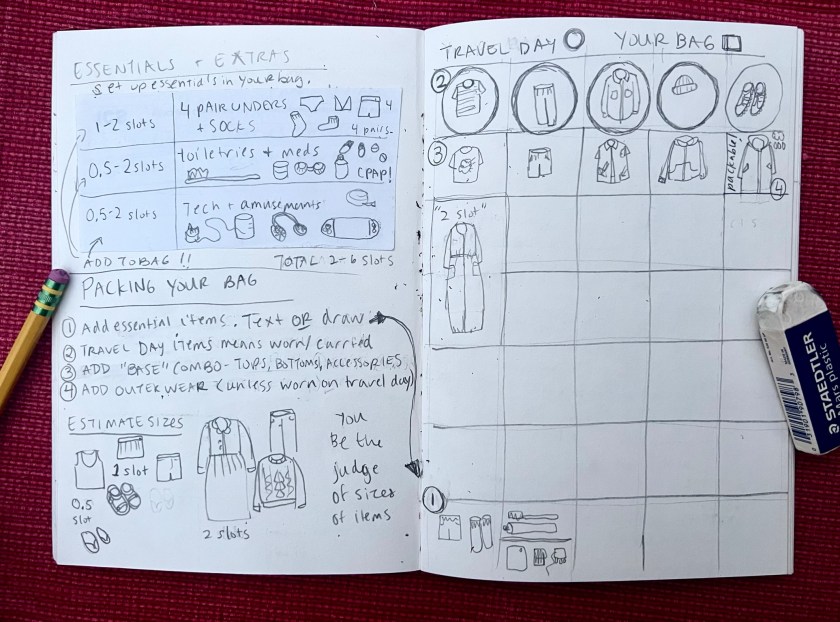 ESSENTIALS + EXTRAS
Set up essentials in your bag.
1-2 slots
4 PAIR UNDERS
+ SOCKS
4
4 pairs.
0.5-2 slots
toiletries + meds
CPAP!
0.5-2 slots
Tech + amusements
ADD TO BAG !!
TOTAL 2-6 slots
PACKING YOUR BAG
① Add essential items. Text OR draw
② TRAVEL DAY items means worn/carried
③ ADD "BASE" COMBO - TOPS, BOTTOMS, ACCESSORIES
④ ADD OUTERWEAR (unless worn on travel day)
ESTIMATE SIZES
1 slot
0.5
slot
2 slots
You
Be the
judge
of sizes
of items
TRAVEL DAY
YOUR BAG
②
③
packable!
④
"2 slot"
①
STAEDTLER